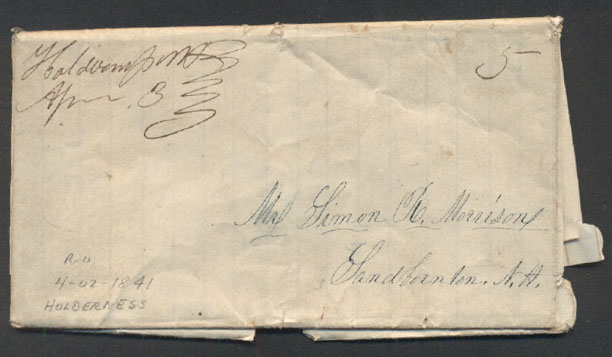 Holderness NH
April 3
5
Mr Simon F. Morrison
Sandbornton. N.H.
R-O
4-02-1841
HOLDERNESS